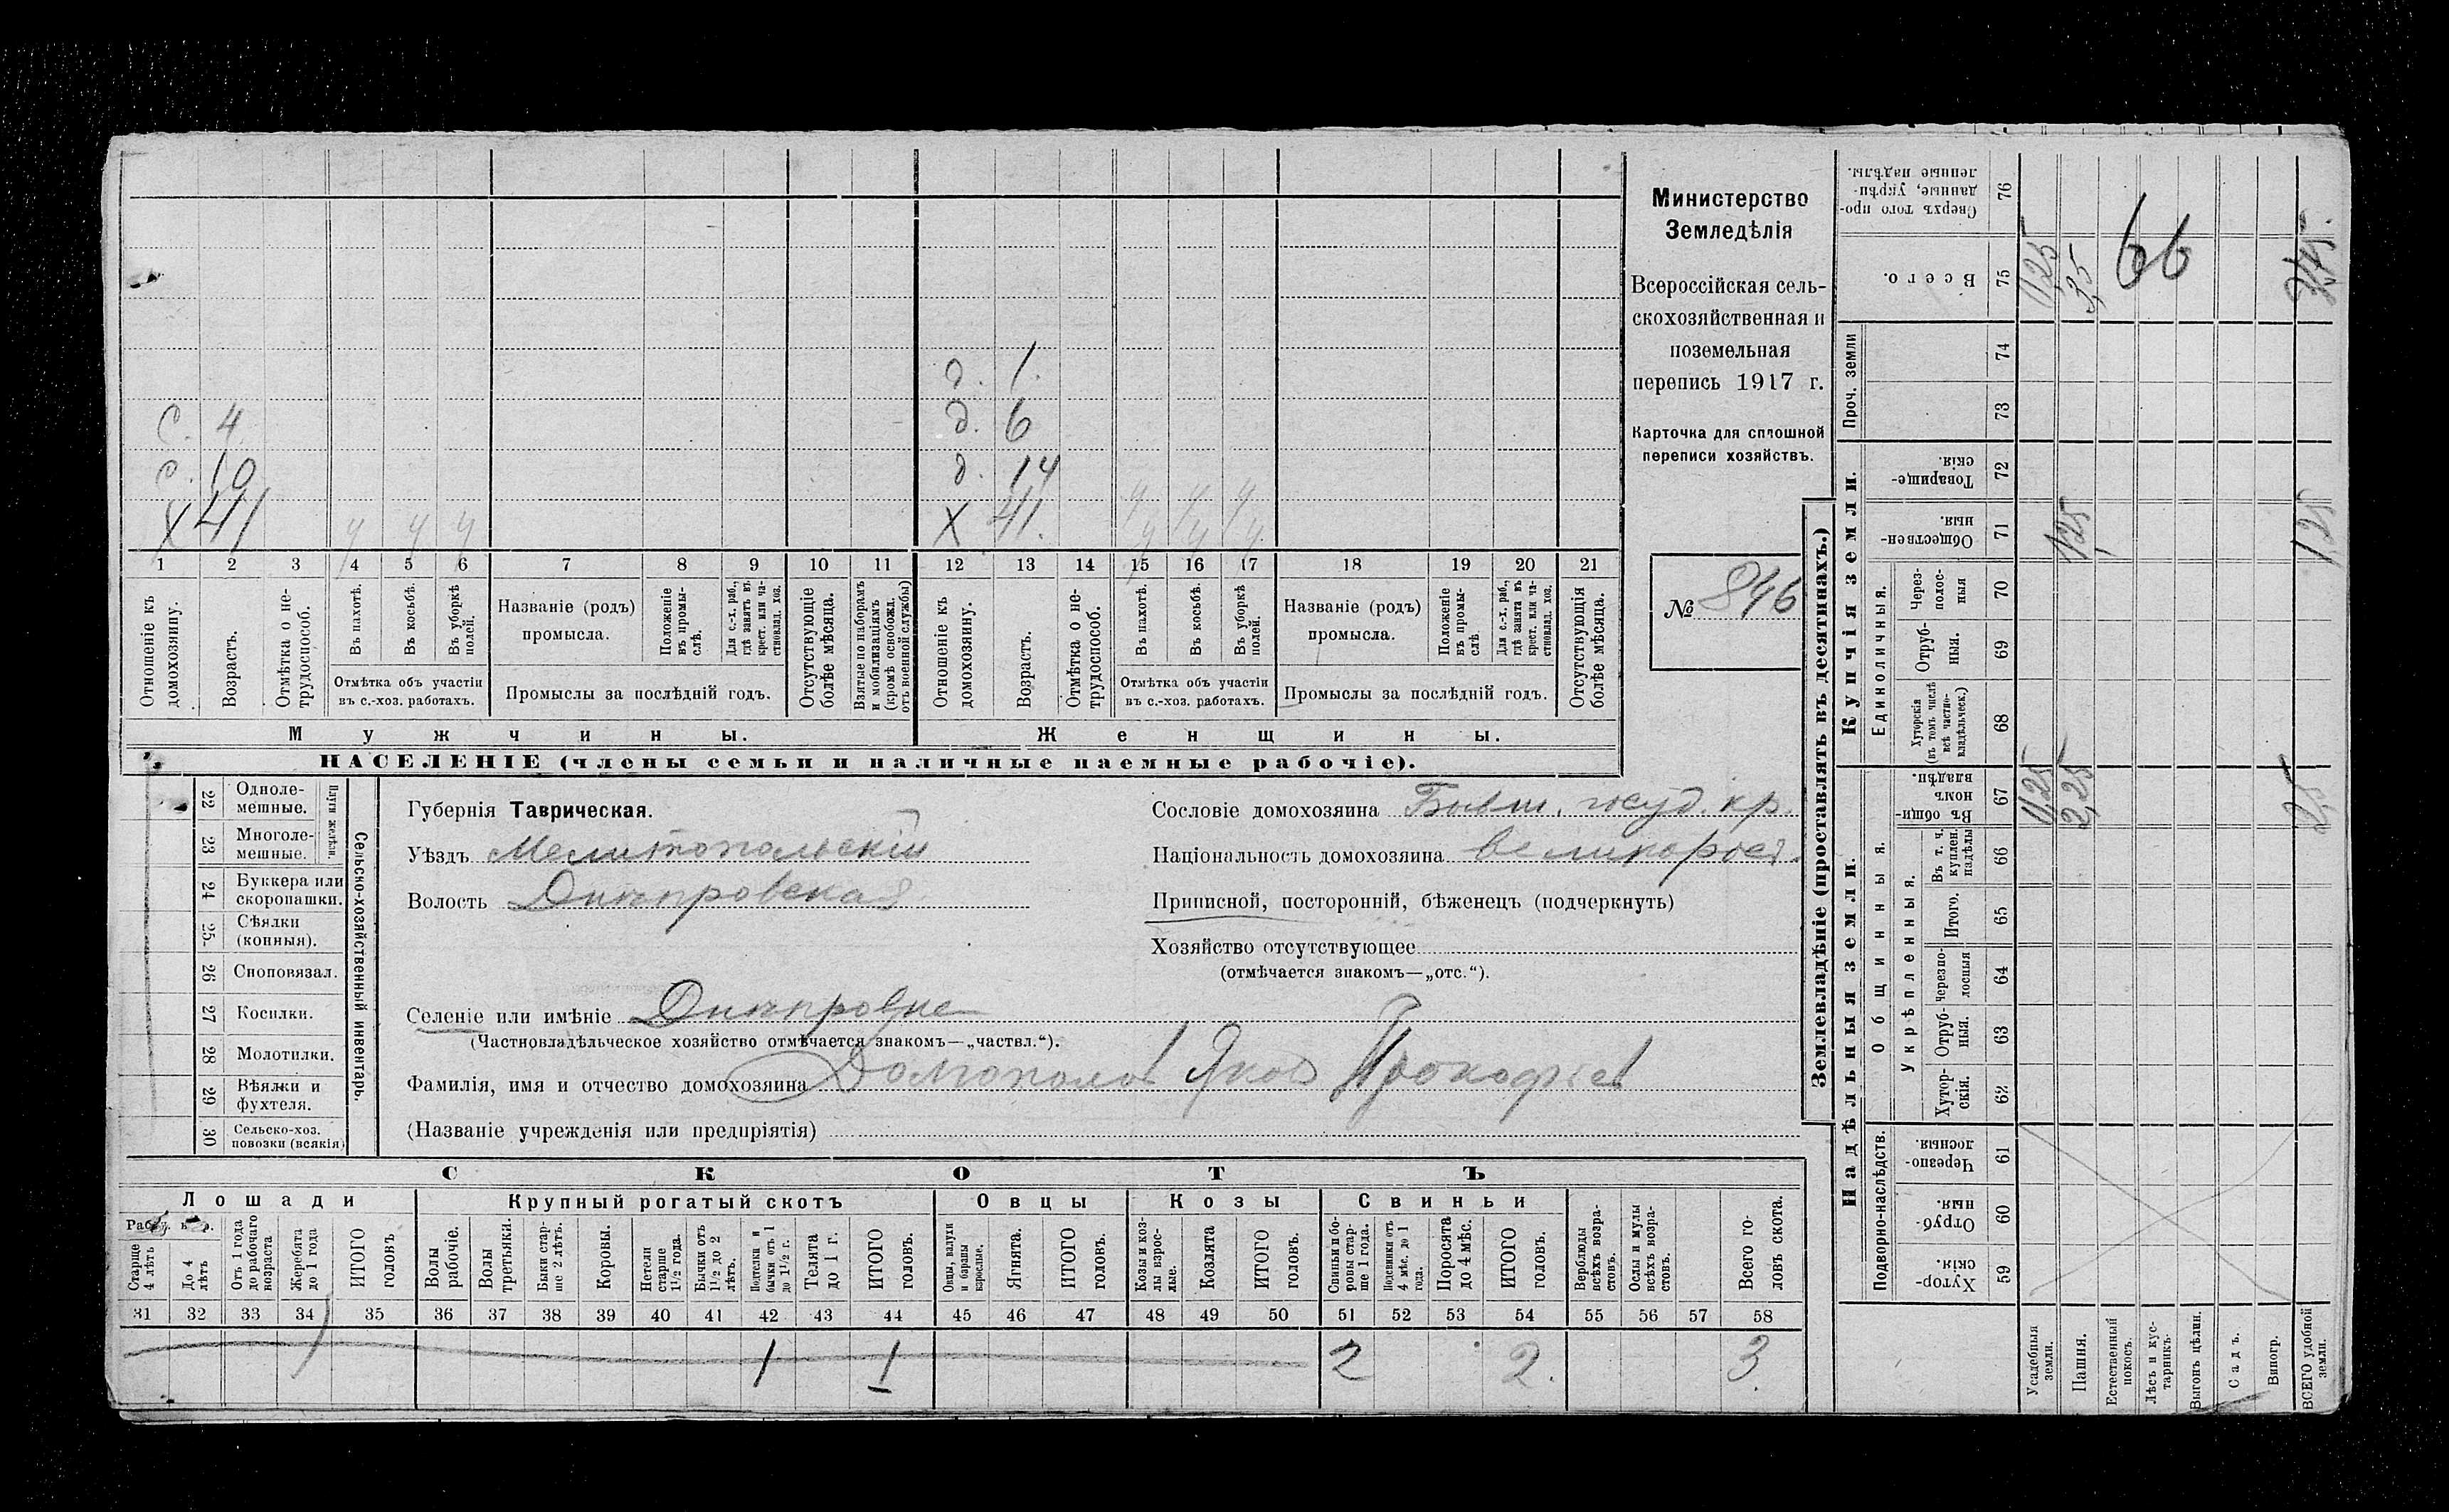 Министерство
Земледѣлія
Всероссійская сель-
скохозяйственная и
поземельная
перепись 1917 г.
Карточка для сплошной
переписи хозяйствъ.
№ 846
д. 1.
с. 4 д. 6
с. 10 д. 14
х 41 у у у х 41. у у у
1 2 3 4 5 6 7 8 9 10 11 12 13 14 15 16 17 18 19 20 21
Отношеніе къ домохозяину.
Возрастъ.
Отмѣтка о не-трудоспособ.
Въ пахотѣ.
Въ косьбѣ.
Въ уборкѣ полей.
Отмѣтка объ участіи
въ с.-хоз. работахъ.
Названіе (родъ)
промысла.
Положеніе въ промы-слѣ.
Для с.-х. раб., гдѣ занятъ въ крест. или ча-стновлад. хоз.
Промыслы за послѣдній годъ.
Отсутствующіе болѣе мѣсяца.
Взятые по наборамъ и мобилизаціямъ (кромѣ освобожд. отъ военной службы)
Отношеніе къ домохозяину.
Возрастъ.
Отмѣтка о не-трудоспособ.
Въ пахотѣ.
Въ косьбѣ.
Въ уборкѣ полей.
Отмѣтка объ участіи
въ с.-хоз. работахъ.
Названіе (родъ)
промысла.
Положеніе въ промы-слѣ.
Для с.-х. раб., гдѣ занята въ крест. или ча-стновлад. хоз.
Промыслы за послѣдній годъ.
Отсутствующія болѣе мѣсяца.
Мужчины. Женщины.
НАСЕЛЕНІЕ (члены семьи и наличные наемные рабочіе).
22 Одноле-мешные.
23 Многоле-мешные.
Плуги желѣзн.
24 Буккера или скоропашки.
25 Сѣялки (конныя).
26 Сноповязал.
27 Косилки.
28 Молотилки.
29 Вѣялки и фухтеля.
30 Сельско-хоз. повозки (всякія)
Сельско-хозяйственный инвентарь.
Губернія Таврическая.
Уѣздъ Мелитопольскій
Волость Днѣпровская
Селеніе или имѣніе
(Частновладѣльческое хозяйство отмѣчается знакомъ—„частвл.“).
Фамилія, имя и отчество домохозяина Яков Прокофьев
(Названіе учрежденія или предпріятія)
Сословіе домохозяина Бывш. госуд. кр.
Національность домохозяина великорос.
Приписной, посторонній, бѣженецъ (подчеркнуть)
Хозяйство отсутствующее
(отмѣчается знакомъ—„отс.“).
СКОТЪ
Лошади Крупный рогатый скотъ Овцы Козы Свиньи
Старше 4 лѣтъ
До 4 лѣтъ
Отъ 1 года до рабочаго возраста
Жеребята до 1 года
ИТОГО головъ
Волы рабочіе.
Волы третьяки.
Быки стар-ше 2 лѣтъ.
Коровы.
Нетели старше 1½ года.
Бычки отъ 1½ до 2 лѣтъ.
Подтелки и бычки отъ 1 до 1½ г.
Телята до 1 г.
ИТОГО головъ.
Овцы, валухи и бараны взрослые.
Ягнята.
ИТОГО головъ.
Козы и коз-лы взрос-лые.
Козлята
ИТОГО головъ.
Свиньи и бо-ровы стар-ше 1 года.
Подсвинки отъ 4 мѣс. до 1 года.
Поросята до 4 мѣс.
ИТОГО головъ.
Верблюды всѣхъ возра-стовъ.
Ослы и мулы всѣхъ возра-стовъ.
Всего го-ловъ скота.
31 32 33 34 35 36 37 38 39 40 41 42 43 44 45 46 47 48 49 50 51 52 53 54 55 56 57 58
1 1 2 2. 3.
Землевладѣніе (проставлять въ десятинахъ.)
Надѣльныя земли. Купчія земли. Проч. земли
Подворно-наслѣдств.
Общинныя.
Укрѣпленныя.
Единоличныя.
76 Сверхъ того про-данные, укрѣп-ленные надѣлы.
75 Всего. 0,25 3,5
66
74
73
72 Товарище-скія.
71 Обществен-ныя. 1,25 1,25
70 Через-полос-ныя
69 Отруб-ныя.
68 Хуторскія (въ томъ числѣ всѣ частно-владѣльческ.)
67 Въ общин-номъ владѣн. 0,25 2,25 2,5
66 Въ т. ч. куплен. надѣлы
65 Итого.
64 Черезпо-лосныя
63 Отруб-ныя.
62 Хутор-скія.
61 Черезпо-лосныя.
60 Отруб-ныя.
59 Хутор-скія.
Усадебныя земли.
Пашня.
Естественный покосъ.
Лѣсъ и кус-тарникъ.
Выгонъ цѣлин.
Садъ.
Виногр.
ВСЕГО удобной земли.